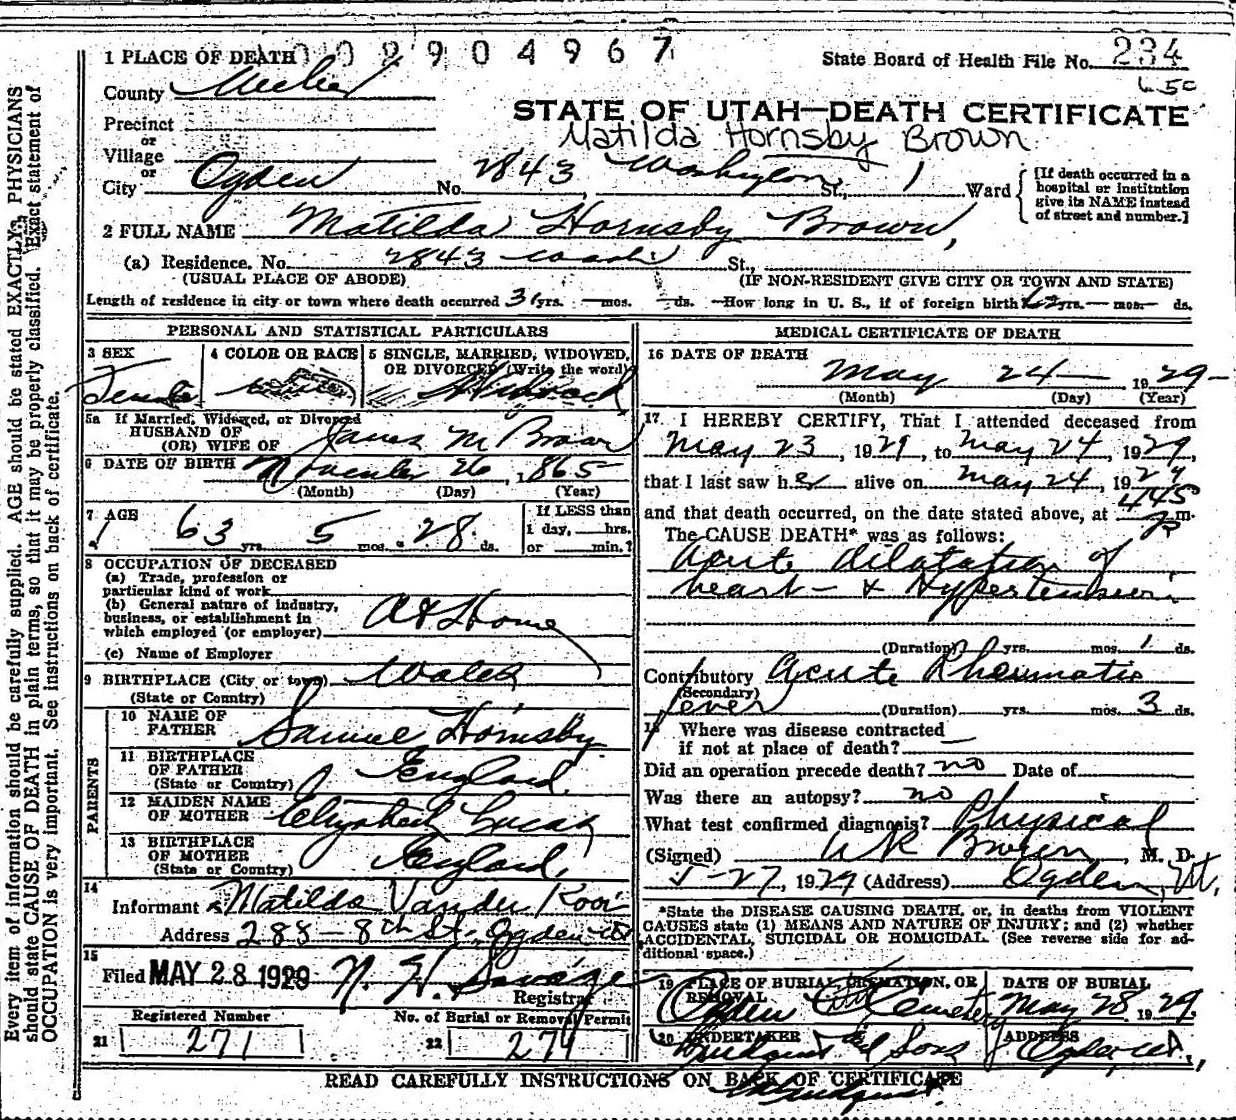 1 PLACE OF DEATH
002904967
State Board of Health File No. 234
650
County Weber
STATE OF UTAH—DEATH CERTIFICATE
Matilda Hornsby Brown
Precinct
or
Village
or
City Ogden No. 2843 Washington St., 1 Ward
[If death occurred in a hospital or institution give its NAME instead of street and number.]
2 FULL NAME Matilda Hornsby Brown,
(a) Residence. No. 2843 Wash St.,
(USUAL PLACE OF ABODE) (IF NON-RESIDENT GIVE CITY OR TOWN AND STATE)
Length of residence in city or town where death occurred 31 yrs. — mos. — ds. —How long in U. S., if of foreign birth 62 yrs. — mos. — ds.
PERSONAL AND STATISTICAL PARTICULARS
3 SEX
Female
4 COLOR OR RACE
5 SINGLE, MARRIED, WIDOWED, OR DIVORCED (Write the word)
Widowed
5a If Married, Widowed, or Divorced
HUSBAND OF
(OR) WIFE OF James M Brown
6 DATE OF BIRTH November 26, 1865
(Month) (Day) (Year)
7 AGE
63 yrs. 5 mos. 28 ds.
If LESS than
1 day, hrs.
or min.?
8 OCCUPATION OF DECEASED
(a) Trade, profession or
particular kind of work
(b) General nature of industry,
business, or establishment in
which employed (or employer) At Home
(c) Name of Employer
9 BIRTHPLACE (City or town) Wales
(State or Country)
PARENTS
10 NAME OF FATHER Samuel Hornsby
11 BIRTHPLACE OF FATHER England
(State or Country)
12 MAIDEN NAME OF MOTHER Elizabeth Lucas
13 BIRTHPLACE OF MOTHER England,
(State or Country)
14
Informant Matilda Vander Kooi
Address 288 - 8th St. Ogden Ut
15
Filed MAY 28 1929 N. H. Savage
Registrar
Registered Number
21 271
No. of Burial or Removal Permit
22 274
MEDICAL CERTIFICATE OF DEATH
16 DATE OF DEATH
May 24— 1929-
(Month) (Day) (Year)
17. I HEREBY CERTIFY, That I attended deceased from
May 23, 1929, to May 24, 1929,
that I last saw her alive on May 24, 1929
and that death occurred, on the date stated above, at 445 p m.
The CAUSE DEATH* was as follows:
Acute dilatation of
heart - & Hypertension.
(Duration) yrs. mos. 1 ds.
Contributory Acute Rheumatic
(Secondary)
fever (Duration) yrs. mos. 3 ds.
18 Where was disease contracted
if not at place of death? —
Did an operation precede death? no Date of
Was there an autopsy? no
What test confirmed diagnosis? Physical
(Signed) W R Brown, M. D.
5-27, 1929 (Address) Ogden, Ut.
*State the DISEASE CAUSING DEATH, or, in deaths from VIOLENT
CAUSES state (1) MEANS AND NATURE OF INJURY; and (2) whether
ACCIDENTAL, SUICIDAL OR HOMICIDAL. (See reverse side for additional space.)
19 PLACE OF BURIAL, CREMATION, OR REMOVAL
Ogden City Cemetery
DATE OF BURIAL
May 28 1929.
20 UNDERTAKER
and Sons
ADDRESS
Ogden Ut.,
READ CAREFULLY INSTRUCTIONS ON BACK OF CERTIFICATE
Every item of information should be carefully supplied. AGE should be stated EXACTLY. PHYSICIANS
should state CAUSE OF DEATH in plain terms, so that it may be properly classified. Exact statement of
OCCUPATION is very important. See instructions on back of certificate.